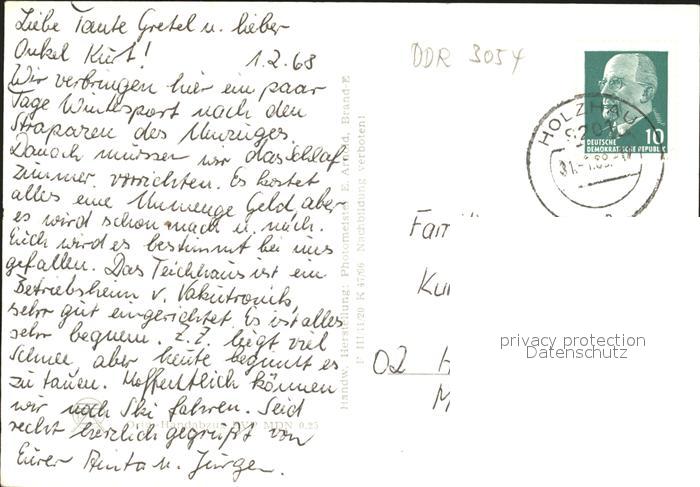 Liebe Tante Gretel u. lieber
Onkel Kurt! 1.2.68
Wir verbringen hier ein paar
Tage Wintersport nach den
Strapazen des Umzuges.
Danach müssen wir das Schlaf
zimmer vorrichten. Es kostet
alles eine Unmenge Geld, aber
es wird schon nach u. nach.
Euch wird es bestimmt bei uns
gefallen. Das Teichhaus ist ein
Betriebsheim v. Vakutronik,
sehr gut eingerichtet. Es ist alles
sehr bequem. Z.Z. liegt viel
Schnee, aber heute beginnt es
zu tauen. Hoffentlich können
wir noch Ski fahren. Seid
recht herzlich gegrüßt von
Eurer Anita u. Jürgen.
Handabzug EVP MDN 0.25
Handw. Herstellung: Photomeister E. Arnold, Brand-E
P III/11/20 K 47/66 Nachbildung verboten!
DDR 3054
HOLZHAU
9201
10
DEUTSCHE
DEMOKRATISCHE REPUBLIK
Fam
Ku
02 H
M
privacy protection
Datenschutz